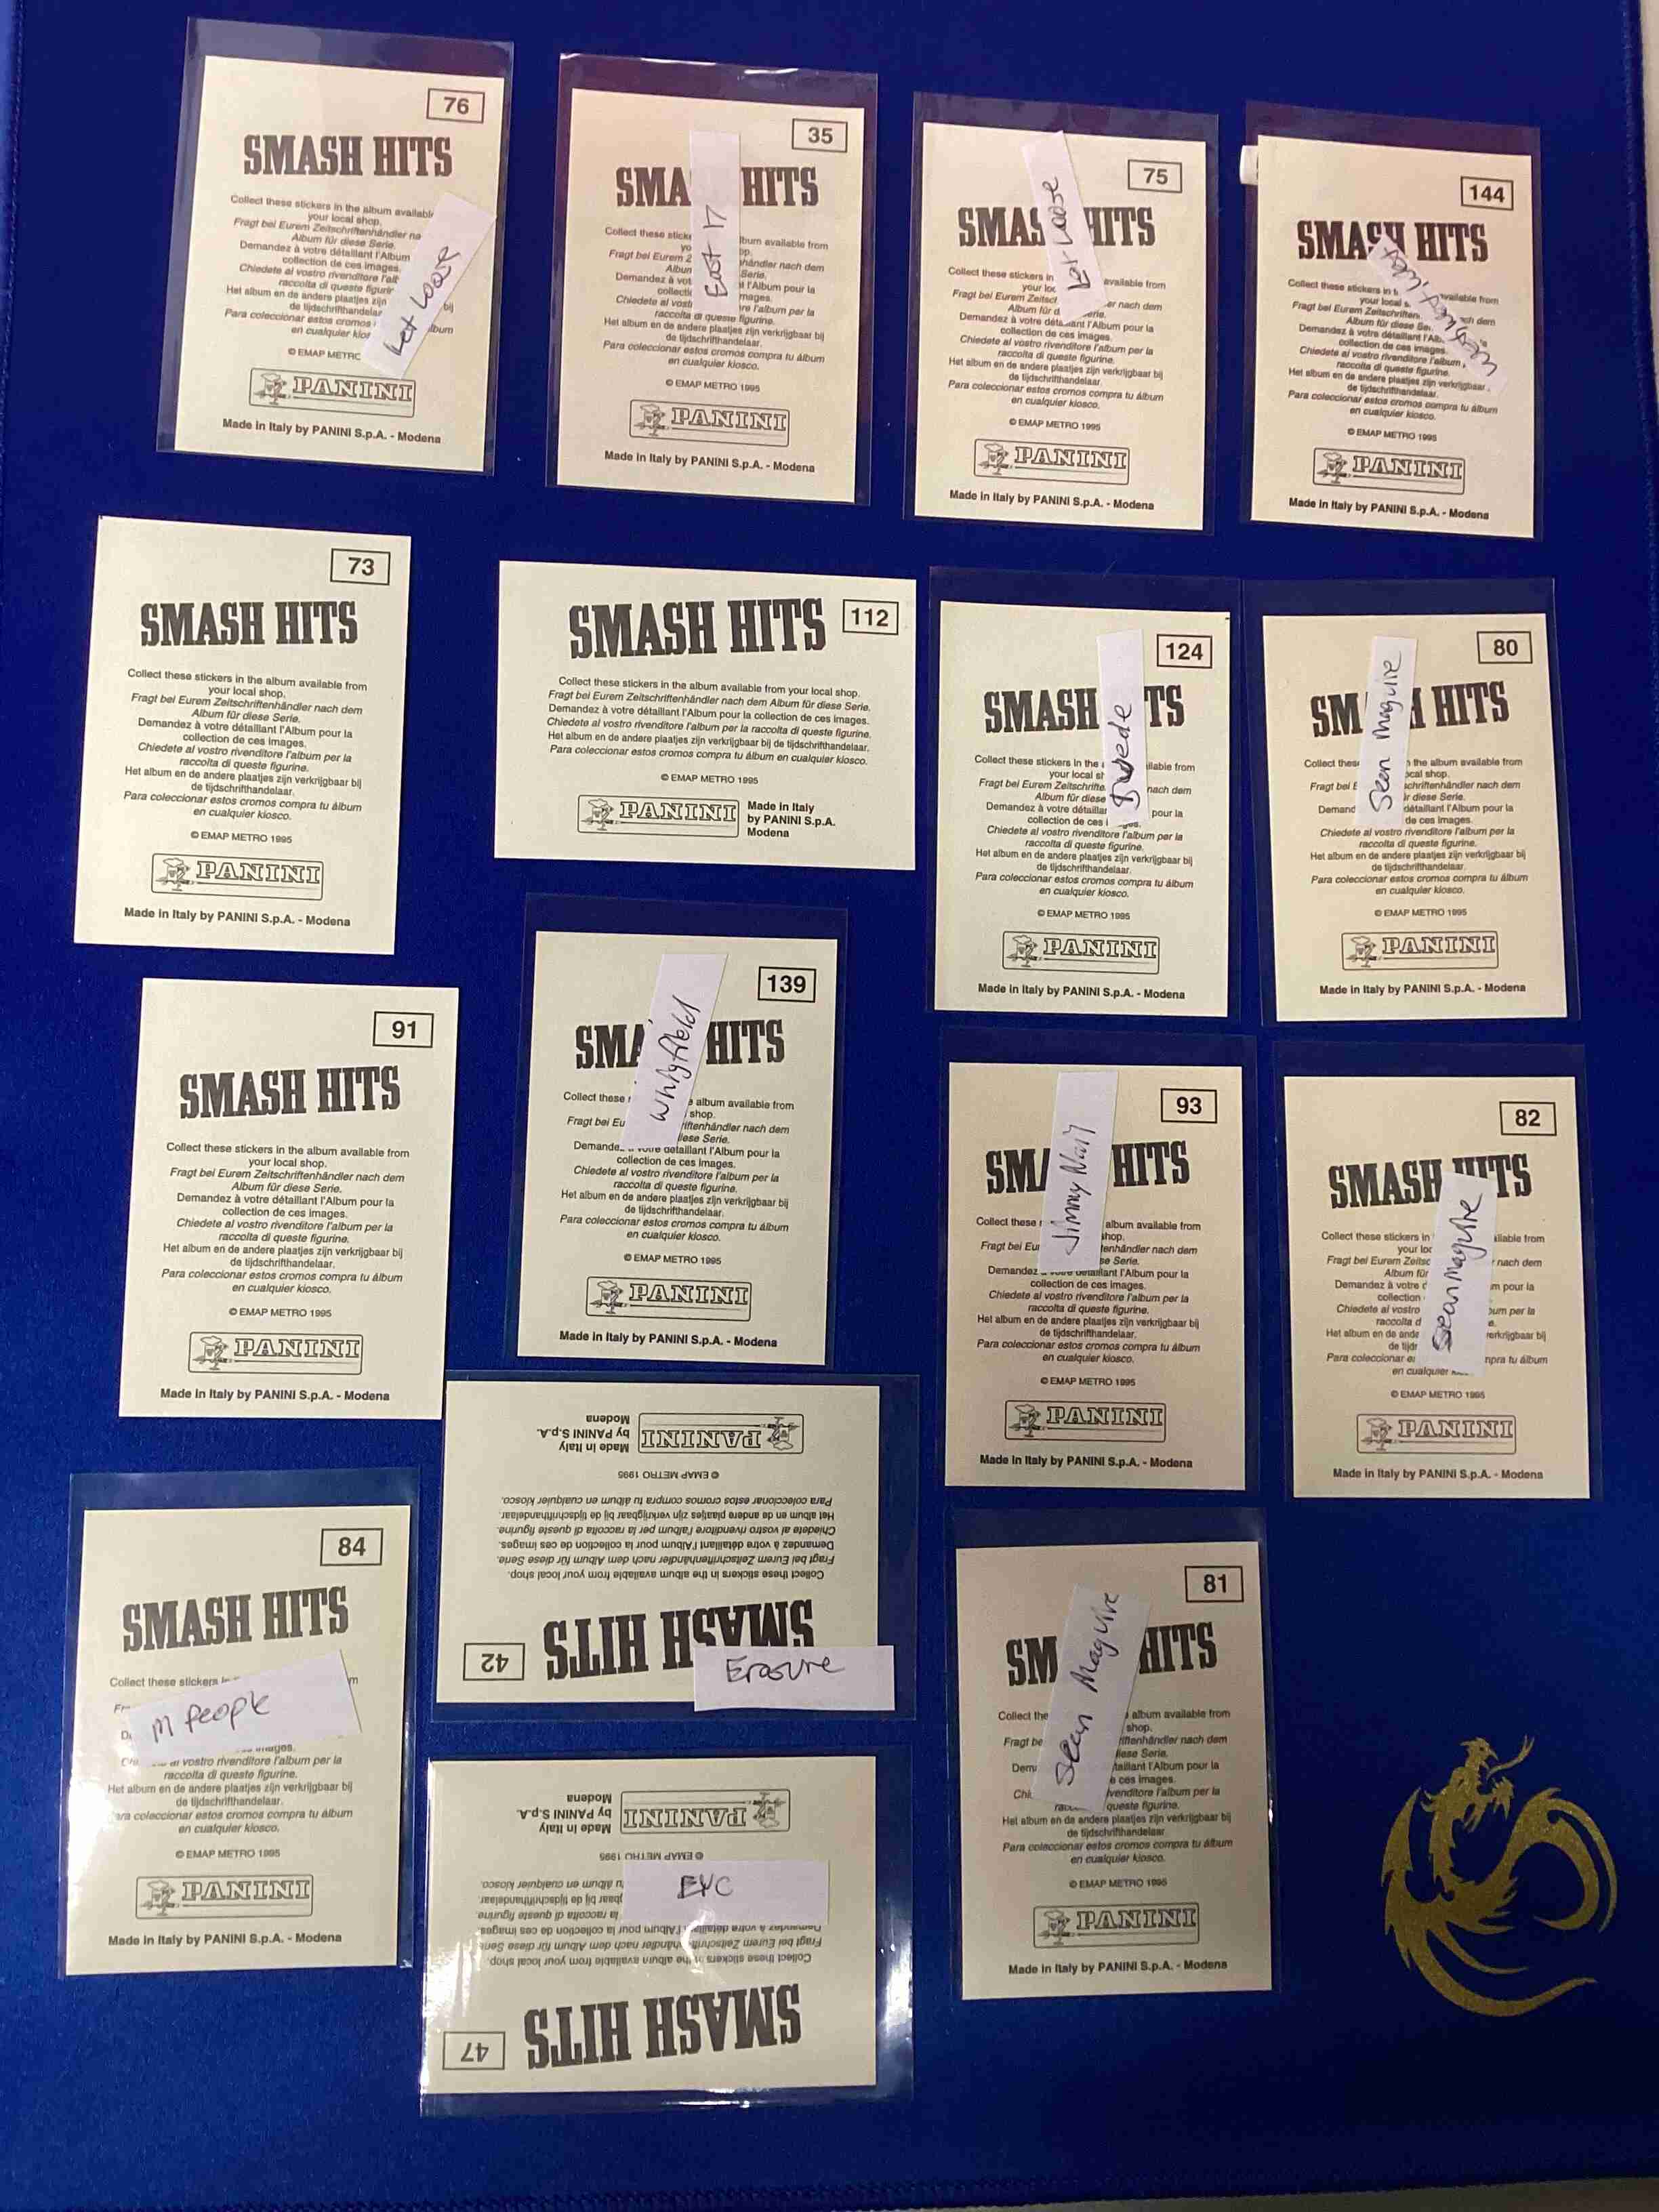 76
SMASH HITS
Collect these stickers in the album available
your local shop.
Fragt bei Eurem Zeitschriftenhändler na
Album für diese Serie.
Demandez à votre détaillant l'Album
collection de ces images.
Chiedete al vostro rivenditore l'alb
raccolta di queste figurin
Het album en de andere plaatjes zijn
bij
de tijdschrifthandelar
Para coleccionar estos cromos
lbum
en cualquier kios
© EMAP METRO
PANINI
Made in Italy by PANINI S.p.A. - Modena
Let Loose
35
SMA HITS
Collect these sticke
lbum available from
yo
op.
Fragt bei Eurem Z
händler nach dem
Album
Serie.
Demandez à vot
t l'Album pour la
collecti
mages.
Chiedete al vostr
re l'album per la
raccolta di queste figurine.
Het album en de andere plaatjes zijn verkrijgbaar bij
de tijdschrifthandelaar.
Para coleccionar estos cromos compra tu álbum
en cualquier kiosco.
© EMAP METRO 1995
PANINI
Made in Italy by PANINI S.p.A. - Modena
East 17
75
SMAS HITS
Collect these stickers in
available from
your loc
Fragt bei Eurem Zeitsch
er nach dem
Album für d
erie.
Demandez à votre détaillant l'Album pour la
collection de ces images.
Chiedete al vostro rivenditore l'album per la
raccolta di queste figurine.
Het album en de andere plaatjes zijn verkrijgbaar bij
de tijdschrifthandelaar.
Para coleccionar estos cromos compra tu álbum
en cualquier kiosco.
© EMAP METRO 1995
PANINI
Made in Italy by PANINI S.p.A. - Modena
Let Loose
144
SMASH HITS
Collect these stickers in t
available from
your local s
Fragt bei Eurem Zeitschriften
ch dem
Album für diese Se
Demandez à votre détaillant l'Alb
collection de ces images.
Chiedete al vostro rivenditore l'album
raccolta di queste figurine.
Het album en de andere plaatjes zijn verkrijgbaar
de tijdschrifthandelaar.
Para coleccionar estos cromos compra tu álbum
en cualquier kiosco.
© EMAP METRO 1995
PANINI
Made in Italy by PANINI S.p.A. - Modena
73
SMASH HITS
Collect these stickers in the album available from
your local shop.
Fragt bei Eurem Zeitschriftenhändler nach dem
Album für diese Serie.
Demandez à votre détaillant l'Album pour la
collection de ces images.
Chiedete al vostro rivenditore l'album per la
raccolta di queste figurine.
Het album en de andere plaatjes zijn verkrijgbaar bij
de tijdschrifthandelaar.
Para coleccionar estos cromos compra tu álbum
en cualquier kiosco.
© EMAP METRO 1995
PANINI
Made in Italy by PANINI S.p.A. - Modena
112
SMASH HITS
Collect these stickers in the album available from your local shop.
Fragt bei Eurem Zeitschriftenhändler nach dem Album für diese Serie.
Demandez à votre détaillant l'Album pour la collection de ces images.
Chiedete al vostro rivenditore l'album per la raccolta di queste figurine.
Het album en de andere plaatjes zijn verkrijgbaar bij de tijdschrifthandelaar.
Para coleccionar estos cromos compra tu álbum en cualquier kiosco.
© EMAP METRO 1995
PANINI
Made in Italy
by PANINI S.p.A.
Modena
124
SMASH TS
Collect these stickers in the
ilable from
your local sh
Fragt bei Eurem Zeitschrifte
nach dem
Album für diese
Demandez à votre détailla
pour la
collection de ces i
Chiedete al vostro rivenditore l'album per la
raccolta di queste figurine.
Het album en de andere plaatjes zijn verkrijgbaar bij
de tijdschrifthandelaar.
Para coleccionar estos cromos compra tu álbum
en cualquier kiosco.
© EMAP METRO 1995
PANINI
Made in Italy by PANINI S.p.A. - Modena
80
SM H HITS
Collect thes
n the album available from
ocal shop.
Fragt bei E
schriftenhändler nach dem
ür diese Serie.
Demand
détaillant l'Album pour la
de ces images.
Chiedete al vostro rivenditore l'album per la
raccolta di queste figurine.
Het album en de andere plaatjes zijn verkrijgbaar bij
de tijdschrifthandelaar.
Para coleccionar estos cromos compra tu álbum
en cualquier kiosco.
© EMAP METRO 1995
PANINI
Made in Italy by PANINI S.p.A. - Modena
Sean Maguire
91
SMASH HITS
Collect these stickers in the album available from
your local shop.
Fragt bei Eurem Zeitschriftenhändler nach dem
Album für diese Serie.
Demandez à votre détaillant l'Album pour la
collection de ces images.
Chiedete al vostro rivenditore l'album per la
raccolta di queste figurine.
Het album en de andere plaatjes zijn verkrijgbaar bij
de tijdschrifthandelaar.
Para coleccionar estos cromos compra tu álbum
en cualquier kiosco.
© EMAP METRO 1995
PANINI
Made in Italy by PANINI S.p.A. - Modena
139
SMA HITS
Collect these
album available from
shop.
Fragt bei Eu
riftenhändler nach dem
iese Serie.
Demande
détaillant l'Album pour la
collection de ces images.
Chiedete al vostro rivenditore l'album per la
raccolta di queste figurine.
Het album en de andere plaatjes zijn verkrijgbaar bij
de tijdschrifthandelaar.
Para coleccionar estos cromos compra tu álbum
en cualquier kiosco.
© EMAP METRO 1995
PANINI
Made in Italy by PANINI S.p.A. - Modena
Whigfield
93
SMA HITS
Collect these
album available from
shop.
Fragt bei Eur
enhändler nach dem
se Serie.
Demandez
détaillant l'Album pour la
collection de ces images.
Chiedete al vostro rivenditore l'album per la
raccolta di queste figurine.
Het album en de andere plaatjes zijn verkrijgbaar bij
de tijdschrifthandelaar.
Para coleccionar estos cromos compra tu álbum
en cualquier kiosco.
© EMAP METRO 1995
PANINI
Made in Italy by PANINI S.p.A. - Modena
Jimmy Nail
82
SMASH HITS
Collect these stickers in
ilable from
your loc
Fragt bei Eurem Zeitsc
nach dem
Album für
Demandez à votre d
m pour la
collection
Chiedete al vostro
bum per la
raccolta d
e.
Het album en de ande
verkrijgbaar bij
de tijd
Para coleccionar es
mpra tu álbum
en cualquier
© EMAP METRO 1995
PANINI
Made in Italy by PANINI S.p.A. - Modena
Sean Maguire
42
SMASH HITS
Collect these stickers in the album available from your local shop.
Fragt bei Eurem Zeitschriftenhändler nach dem Album für diese Serie.
Demandez à votre détaillant l'Album pour la collection de ces images.
Chiedete al vostro rivenditore l'album per la raccolta di queste figurine.
Het album en de andere plaatjes zijn verkrijgbaar bij de tijdschrifthandelaar.
Para coleccionar estos cromos compra tu álbum en cualquier kiosco.
© EMAP METRO 1995
PANINI
Made in Italy
by PANINI S.p.A.
Modena
Erasure
84
SMASH HITS
Collect these stickers in
m
Fr
D
images.
Chi
al vostro rivenditore l'album per la
raccolta di queste figurine.
Het album en de andere plaatjes zijn verkrijgbaar bij
de tijdschrifthandelaar.
ara coleccionar estos cromos compra tu álbum
en cualquier kiosco.
© EMAP METRO 1995
PANINI
Made in Italy by PANINI S.p.A. - Modena
M People
81
SM HITS
Collect the
album available from
shop.
Fragt be
riftenhändler nach dem
iese Serie.
Dem
taillant l'Album pour la
e ces images.
Chi
ivenditore l'album per la
queste figurine.
Het album en de andere plaatjes zijn verkrijgbaar bij
de tijdschrifthandelaar.
Para coleccionar estos cromos compra tu álbum
en cualquier kiosco.
© EMAP METRO 1995
PANINI
Made in Italy by PANINI S.p.A. - Modena
Sean Maguire
47
SMASH HITS
Collect these stickers in the album available from your local shop.
Fragt bei Eurem Zeitschriftenhändler nach dem Album für diese Serie
Demandez à votre détaillant l'Album pour la collection de ces images.
la raccolta di queste figurine.
gbaar bij de tijdschrifthandelaar.
tu álbum en cualquier kiosco.
© EMAP METRO 1995
PANINI
Made in Italy
by PANINI S.p.A.
Modena
EYC